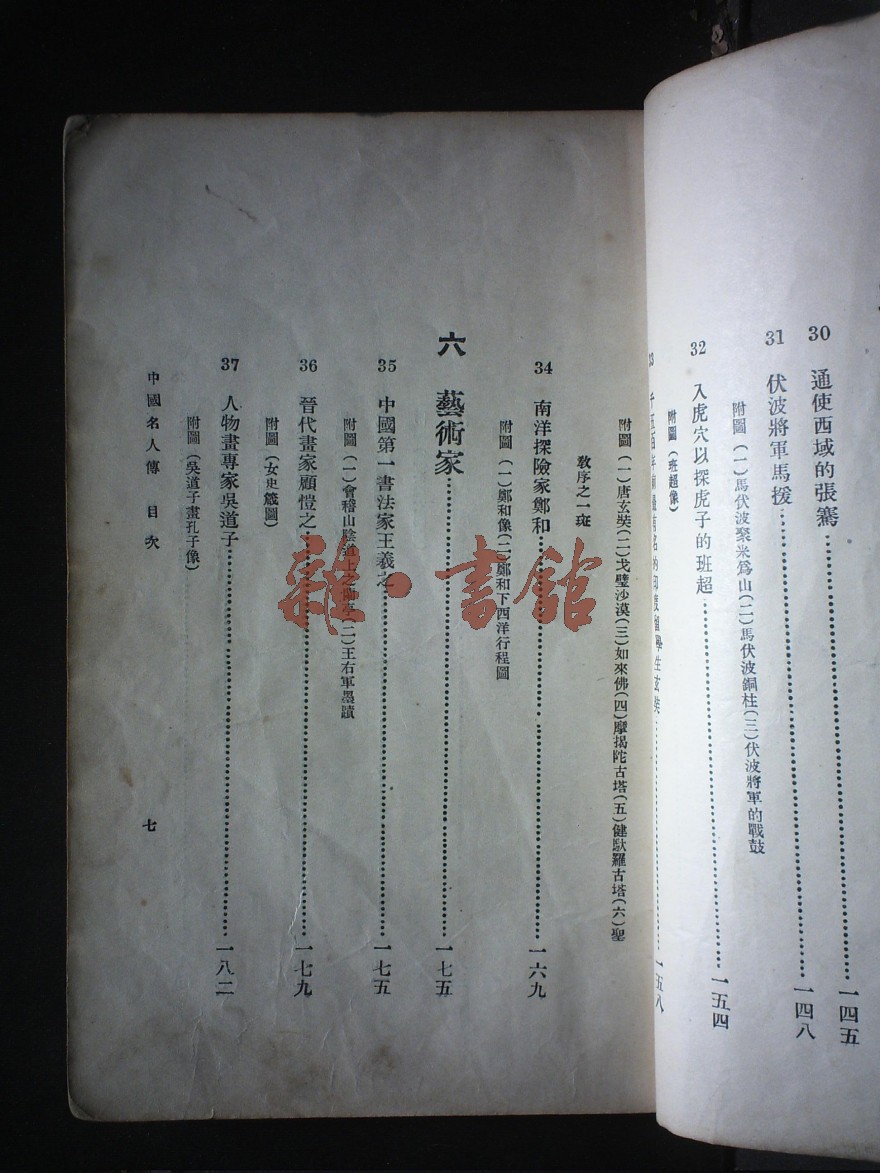 30 通使西域的張騫……一四五
31 伏波將軍馬援……一四八
附圖(一)馬伏波聚米爲山(二)馬伏波銅柱(三)伏波將軍的戰鼓
32 入虎穴以探虎子的班超……一五四
附圖(班超像)
33 千五百年 最有名的印度留學生玄奘……一五八
附圖(一)唐玄奘(二)戈壁沙漠(三)如來佛(四)摩揭陀古塔(五)健馱羅古塔(六)聖
教序之一斑
34 南洋探險家鄭和……一六九
附圖(一)鄭和像(二)鄭和下西洋行程圖
六 藝術家……一七五
35 中國第一書法家王羲之……一七五
附圖(一)會稽山陰道上之 (二)王右軍墨蹟
36 晉代畫家顧愷之……一七九
附圖(女史箴圖)
37 人物畫專家吳道子……一八二
附圖(吳道子畫孔子像)
中國名人傳 目次
七
雜·書館